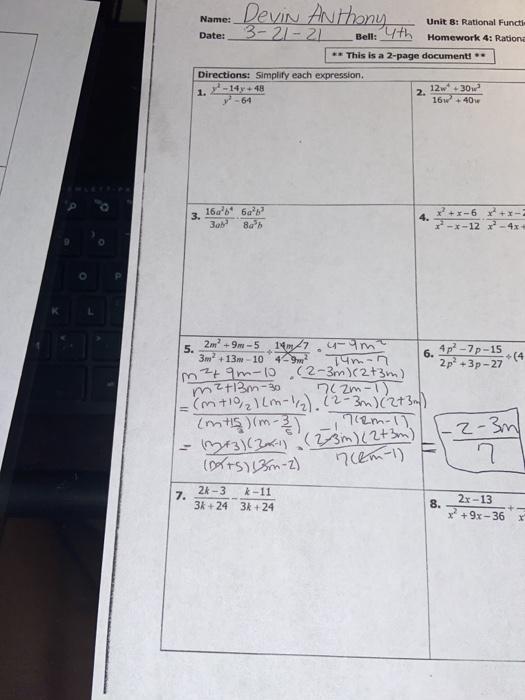 Name: Devin Anthony Unit 8: Rational Functi
Date: 3-21-21 Bell: 4th Homework 4: Rationa
** This is a 2-page document! **
Directions: Simplify each expression.
1. (y² - 14y + 48)/(y² - 64)
2. (12w⁴ + 30w³)/(16w² + 40w)
3. (16a²b⁴)/(3ab³) · (6a²b³)/(8a³b)
4. (x² + x - 6)/(x² - x - 12) · (x² + x - 2)/(x² - 4x +
5. (2m² + 9m - 5)/(3m² + 13m - 10) ÷ (14m - 7)/(4 - 9m²) · (4 - 9m²)/(14m - 7)
(m² + 9m - 10)/(m² + 13m - 30) · ((2-3m)(2+3m))/(7(2m-1))
= ((m + 10/2)(m - 1/2))/((m + 15/3)(m - 2/3)) · ((2-3m)(2+3m))/(7(2m-1))
= ((m+5)(2m-1))/((m+5)(3m-2)) · ((2-3m)(2+3m))/(7(2m-1)) = (-2-3m)/7
6. (4p² - 7p - 15)/(2p² + 3p - 27) ÷ (4
7. (2k - 3)/(3k + 24) - (k - 11)/(3k + 24)
8. (2x - 13)/(x² + 9x - 36) +